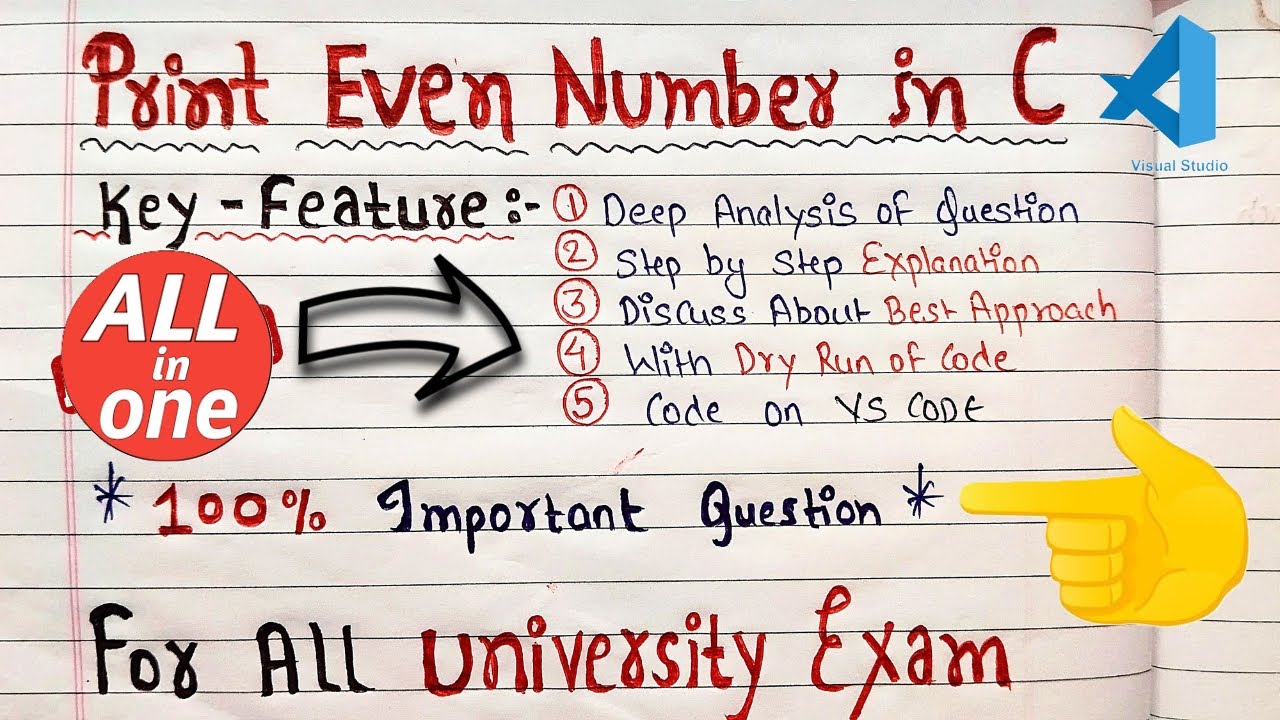 Print Even Number in C
Visual Studio
Key - Feature :-
① Deep Analysis of Question
② Step by Step Explanation
③ Discuss About Best Approach
④ With Dry Run of Code
⑤ Code on VS CODE
ALL
in
one
* 100% Important Question *
For All University Exam